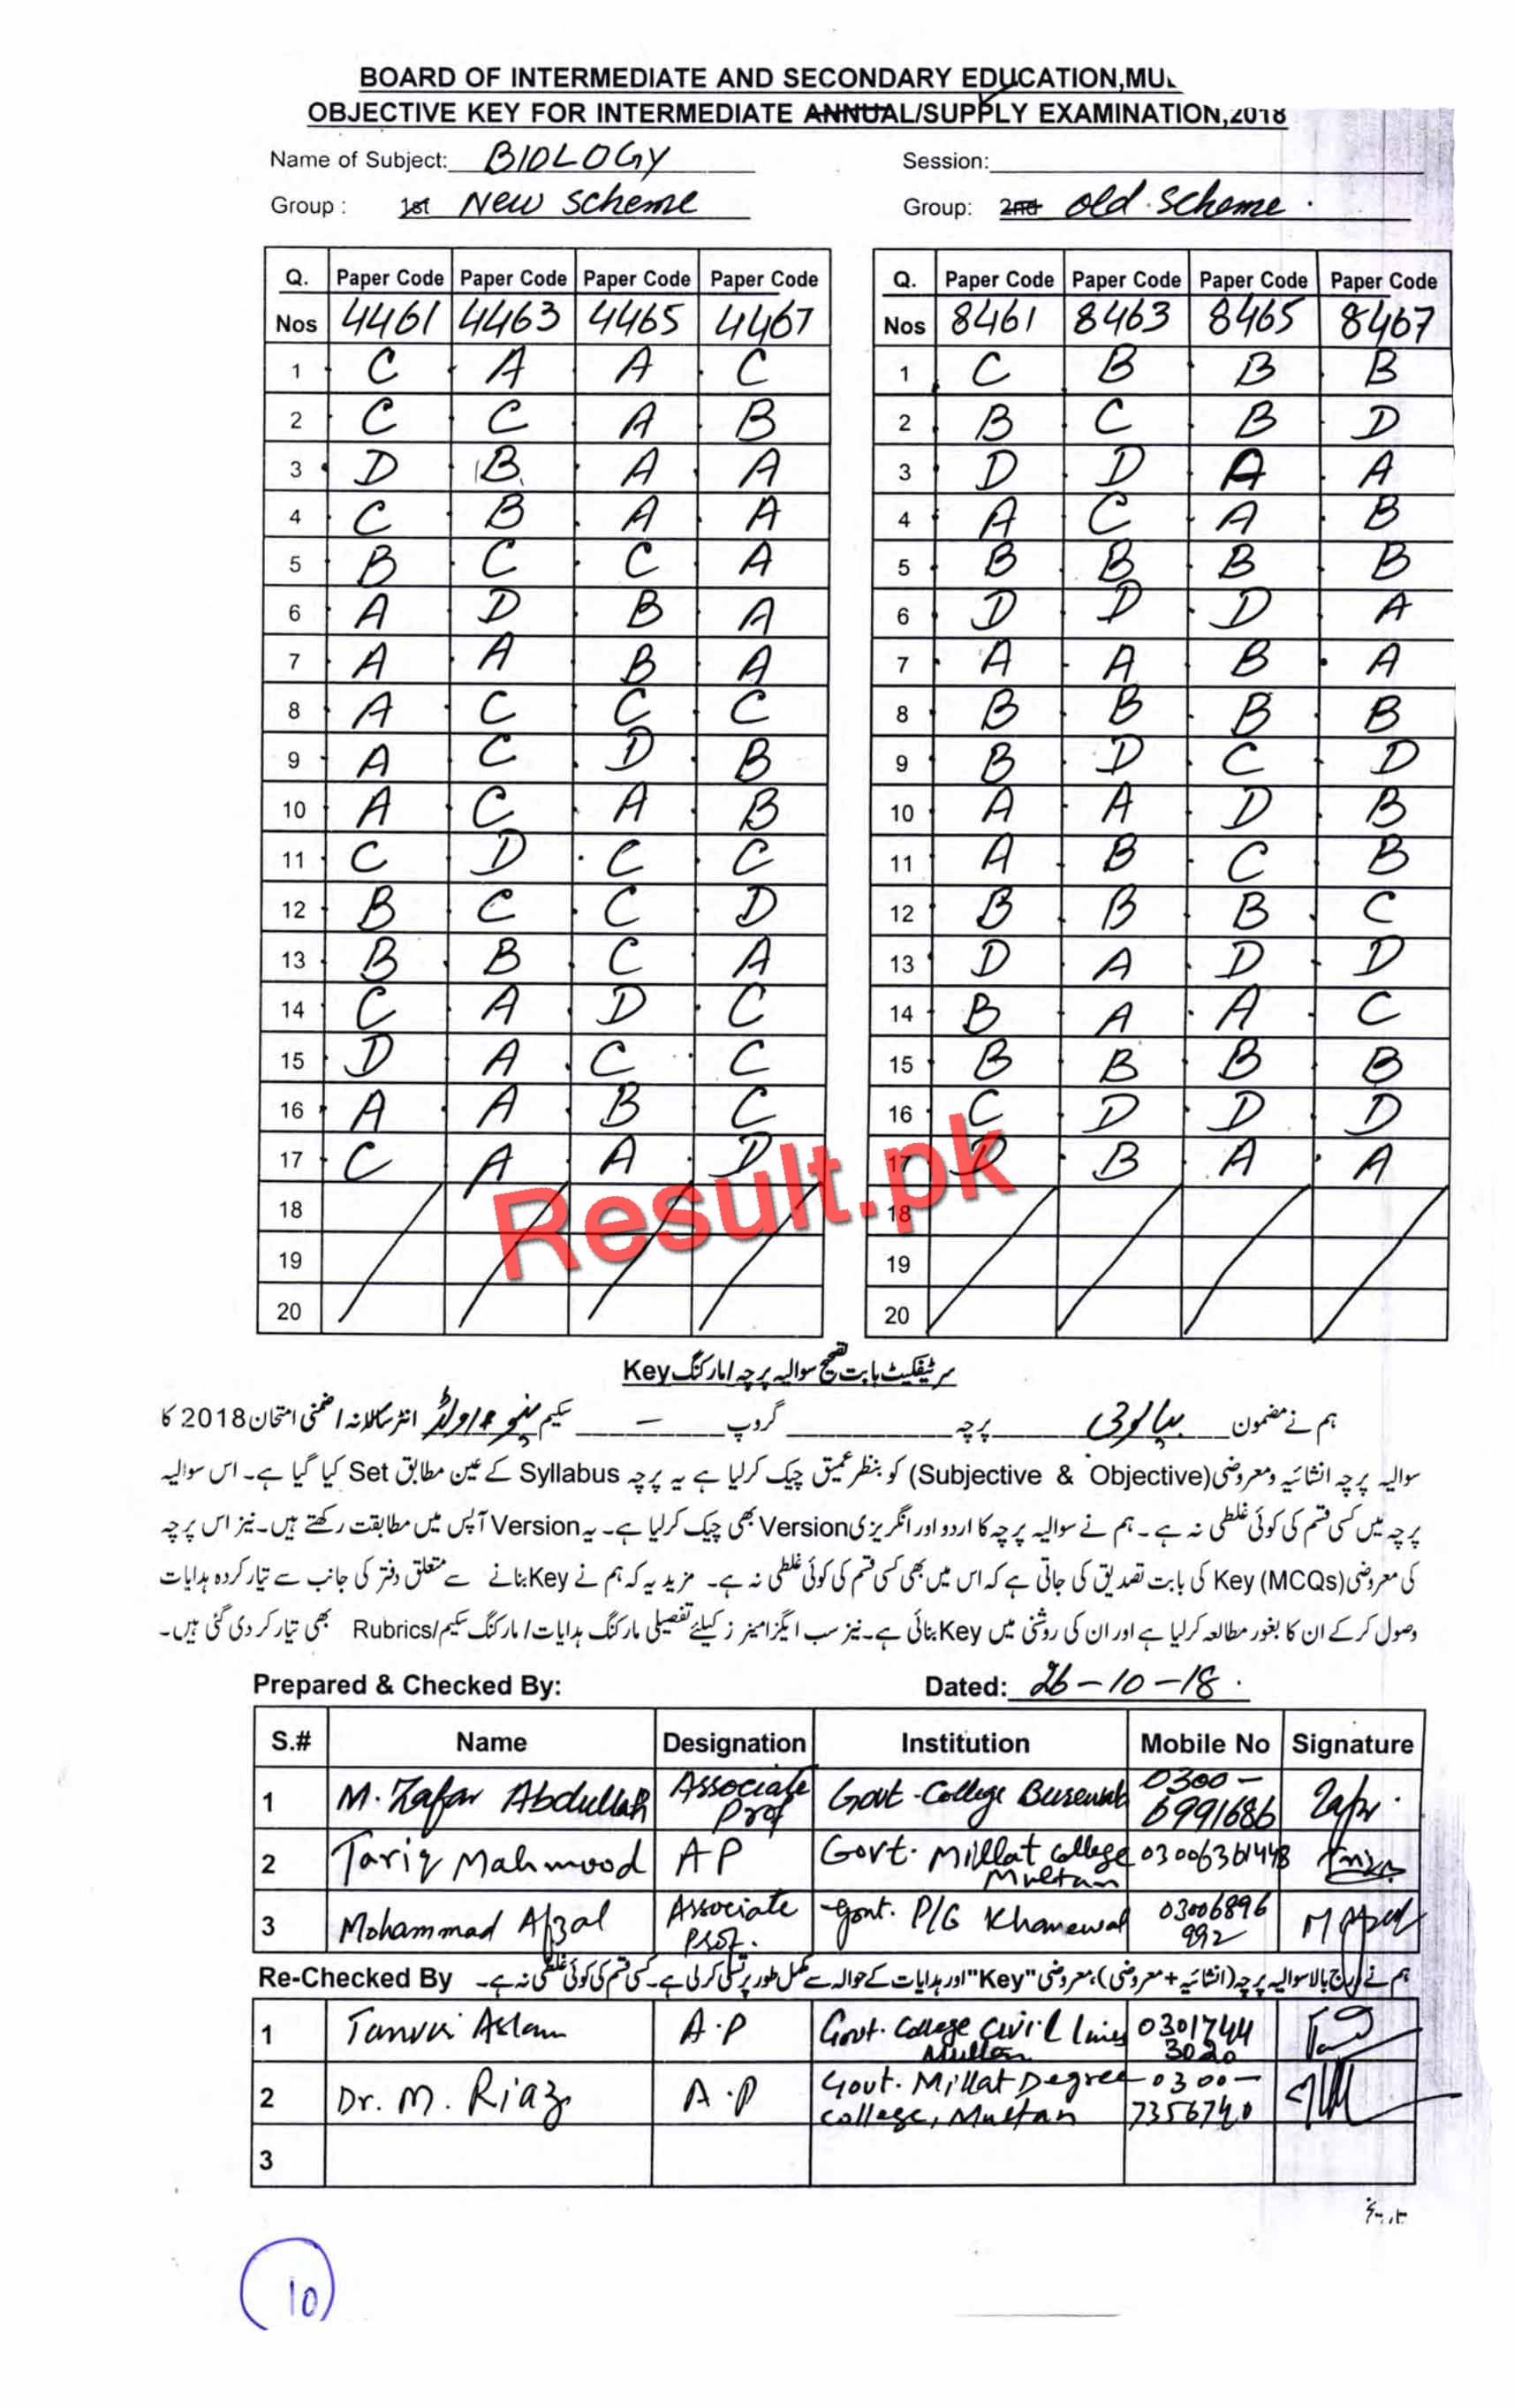 BOARD OF INTERMEDIATE AND SECONDARY EDUCATION,MUL
OBJECTIVE KEY FOR INTERMEDIATE ANNUAL/SUPPLY EXAMINATION,2018
Name of Subject: BIOLOGY Session:
Group : 1st New Scheme Group: 2nd Old Scheme.
Q. Paper Code Paper Code Paper Code Paper Code Q. Paper Code Paper Code Paper Code Paper Code
Nos 4461 4463 4465 4467 Nos 8461 8463 8465 8467
1 C A A C 1 C B B B
2 C C A B 2 B C B D
3 D B A A 3 D D A A
4 C B A A 4 A C A B
5 B C C A 5 B B B B
6 A D B A 6 D D D A
7 A A B A 7 A A B A
8 A C C C 8 B B B B
9 A C D B 9 B D C D
10 A C A B 10 A A D B
11 C D C C 11 A B C B
12 B C C D 12 B B B C
13 B B C A 13 D A D D
14 C A D C 14 B A A C
15 D A C C 15 B B B B
16 A A B C 16 C D D D
17 C A A D 17 D B A A
18 18
19 19
20 20
Result.pk
سرٹیفکیٹ بابت تصحیح سوالیہ پرچہ/مارکنگ Key
ہم نے مضمون بیالوجی پرچہ گروپ — سکیم نیو اولڈ انٹر سالانہ/ضمنی امتحان 2018 کا
سوالیہ پرچہ انشائیہ ومعروضی (Subjective & Objective) کو بنظر عمیق چیک کرلیا ہے یہ پرچہ Syllabus کے عین مطابق Set کیا گیا ہے۔ اس سوالیہ
پرچہ میں کسی قسم کی کوئی غلطی نہ ہے۔ ہم نے سوالیہ پرچہ کا اردو اور انگریزی Version بھی چیک کرلیا ہے۔ یہ Version آپس میں مطابقت رکھتے ہیں۔ نیز اس پرچہ
کی معروضی (MCQs) Key کی بابت تصدیق کی جاتی ہے کہ اس میں بھی کسی قسم کی کوئی غلطی نہ ہے۔ مزید یہ کہ ہم نے Key بنانے سے متعلق دفتر کی جانب سے تیار کردہ ہدایات
وصول کرکے ان کا بغور مطالعہ کرلیا ہے اور ان کی روشنی میں Key بنائی ہے۔ نیز سب ایگزامینرز کیلئے تفصیلی مارکنگ ہدایات/مارکنگ سکیم/Rubrics بھی تیار کردی گئی ہیں۔
Prepared & Checked By: Dated: 26-10-18.
S.# Name Designation Institution Mobile No Signature
1 M. Zafar Abdullah Associate Prof Govt. College Burewala 0300-6991686
2 Tariq Mahmood AP Govt. Millat College Multan 03006361448
3 Mohammad Afzal Associate Prof. Govt. P/G Khanewal 03006896992
Re-Checked By ہم نے درج بالا سوالیہ پرچہ (انشائیہ + معروضی)، معروضی "Key" اور ہدایات کے حوالہ سے مکمل طور پر تسلی کرلی ہے۔ کسی قسم کی کوئی غلطی نہ ہے۔
1 Tanvir Aslam A.P Govt. College Civil Lines Multan 03017443020
2 Dr. M. Riaz A.P Govt. Millat Degree College, Multan 0300-7356740
3
10